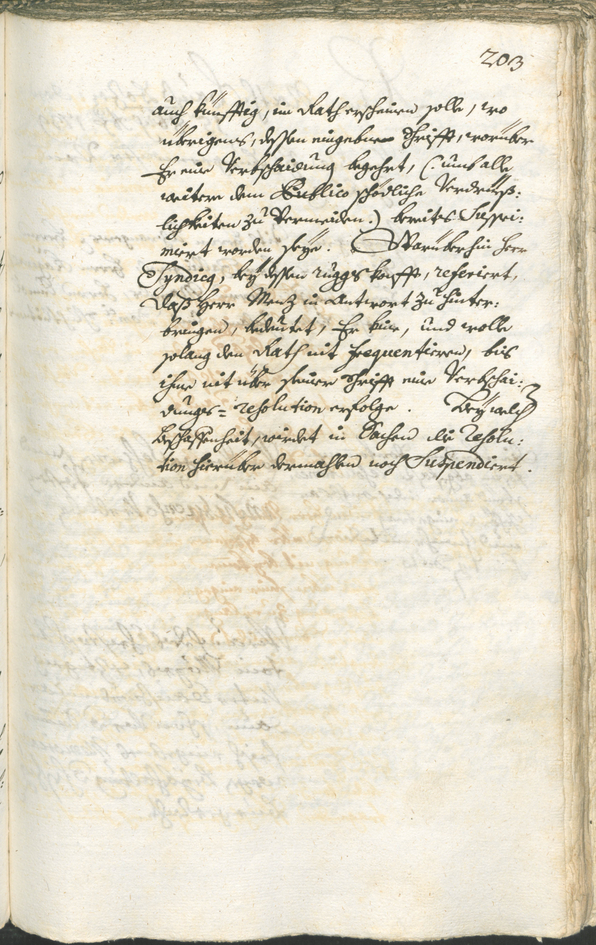 203
auch künfftig, im Rath erscheinen solle, wo
übrigens, dessen eingebne Schrifft, worüber
Er eine Verbschaidung begehrt, (: umb alle
weitere dem Publico schedliche Verdrieß:
lichkeiten zu vermeiden :) bereits Suppri:
miert worden seye. Warüberhin Herr
Syndicg, bey dessen ruggkonfft, referiert,
daß Herr Menz in Antwort zu hinter:
bringen, bedeutet, Er kine, und wolle
solang den Rath nit frequentieren, bis
ihme nit über seiner Schrifft eine Verbschai:
dungs= resolution erfolge. Bey welch
beschaffenheit, wirdet in Sachen die Resolu:
tion hierüber dermahlen noch Suspendiert.